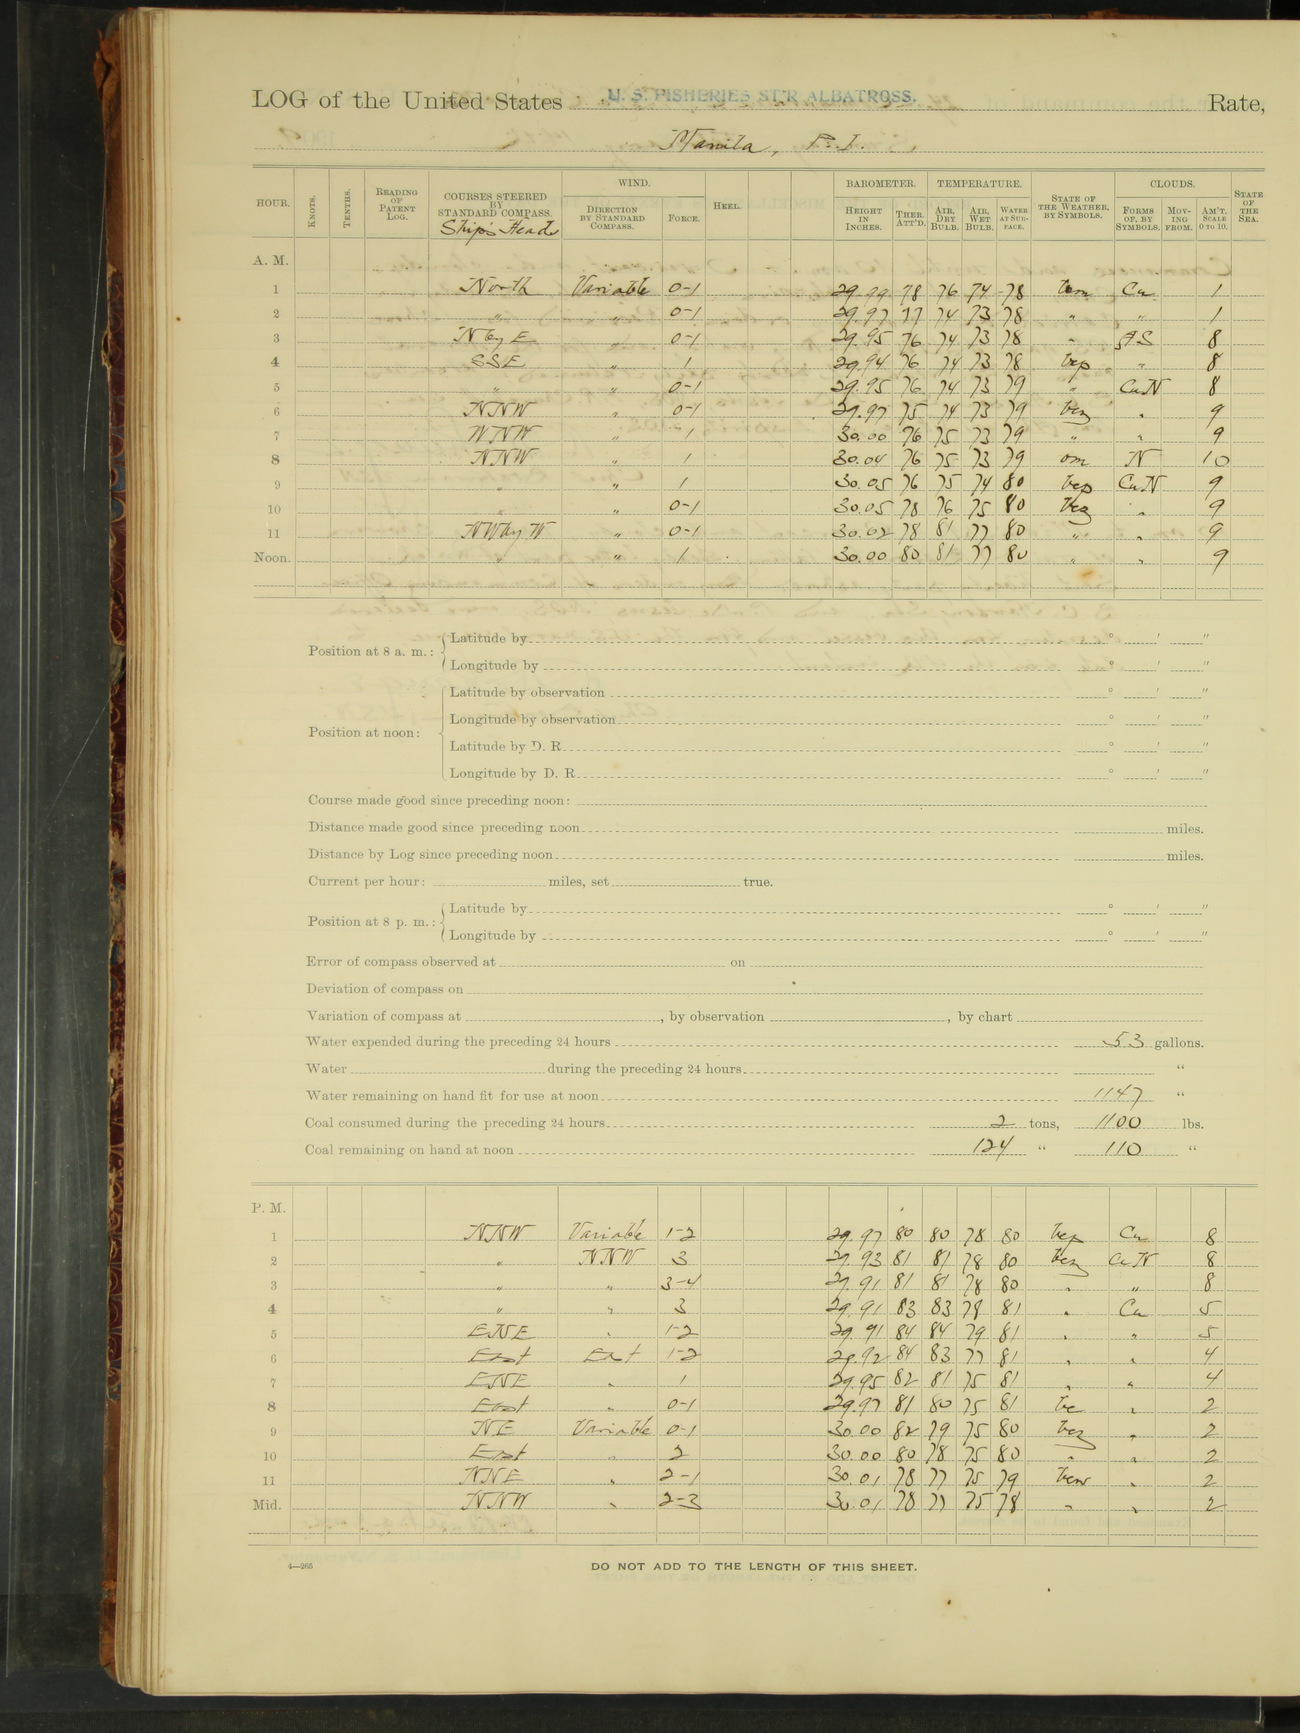 LOG of the United States U. S. FISHERIES ST'R ALBATROSS. Rate,
Manila, P.I.
HOUR. KNOTS. TENTHS. READING OF PATENT LOG. COURSES STEERED BY STANDARD COMPASS. Ship's Head WIND. DIRECTION BY STANDARD COMPASS. FORCE. HEEL. BAROMETER. HEIGHT IN INCHES. THER. ATT'D. TEMPERATURE. AIR, DRY BULB. AIR, WET BULB. WATER AT SURFACE. STATE OF THE WEATHER, BY SYMBOLS. CLOUDS. FORMS OF, BY SYMBOLS. MOVING FROM. AM'T. SCALE 0 TO 10. STATE OF THE SEA.
A. M.
1 North Variable 0-1 29.99 78 76 74 78 Cu 1
2 " " 0-1 29.97 77 74 73 78 " " 1
3 N by E " 0-1 29.95 76 74 73 78 " 8
4 SSE " 1 29.94 76 74 73 78 bcp " 8
5 " " 0-1 29.95 76 74 73 79 " CuN 8
6 NNW " 0-1 29.97 75 74 73 79 bcq " 9
7 WNW " 1 30.00 76 75 73 79 " " 9
8 NNW " 1 30.04 76 75 73 79 om N 10
9 " " 1 30.05 76 75 74 80 bcp CuN 9
10 " " 0-1 30.05 78 76 75 80 bcq " 9
11 NW by W " 0-1 30.02 78 81 77 80 " " 9
Noon. " " 1 30.00 80 81 77 80 " " 9
Position at 8 a. m.: Latitude by ° ′ ″
Longitude by ° ′ ″
Latitude by observation ° ′ ″
Longitude by observation ° ′ ″
Position at noon:
Latitude by D. R. ° ′ ″
Longitude by D. R. ° ′ ″
Course made good since preceding noon:
Distance made good since preceding noon miles.
Distance by Log since preceding noon miles.
Current per hour: miles, set true.
Position at 8 p. m.: Latitude by ° ′ ″
Longitude by ° ′ ″
Error of compass observed at on
Deviation of compass on
Variation of compass at , by observation , by chart
Water expended during the preceding 24 hours 53 gallons.
Water during the preceding 24 hours "
Water remaining on hand fit for use at noon 1147 "
Coal consumed during the preceding 24 hours 2 tons, 1100 lbs.
Coal remaining on hand at noon 124 " 110 "
P. M.
1 NNW Variable 1-2 29.97 80 80 78 80 bcp Cu 8
2 " NNW 3 29.93 81 81 78 80 bcq CuN 8
3 " " 3-4 29.91 81 81 78 80 " " 8
4 " " 3 29.91 83 83 78 81 " Cu 5
5 ENE " 1-2 29.91 84 84 79 81 " " 5
6 East East 1-2 29.92 84 83 77 81 " " 4
7 ENE " 1 29.95 82 81 75 81 " " 4
8 East " 0-1 29.97 81 80 75 81 bc " 2
9 NE Variable 0-1 30.00 82 79 75 80 bcq " 2
10 East " 2 30.00 80 78 75 80 " " 2
11 NNE " 2-1 30.01 78 77 75 79 " 2
Mid. NNW " 2-3 30.01 78 77 75 78 " " 2
4—265
DO NOT ADD TO THE LENGTH OF THIS SHEET.